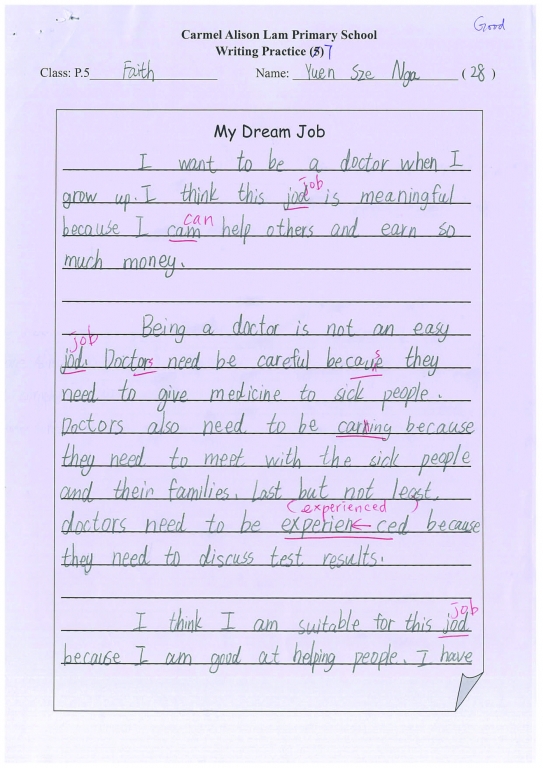 Good
Carmel Alison Lam Primary School
Writing Practice (5) 7
Class: P.5 Faith Name: Yuen Sze Nga (28)
My Dream Job
I want to be a doctor when I
job
grow up. I think this jod is meaningful
can
because I cam help others and earn so
much money.
Being a doctor is not an easy
job
jod. Doctors need be careful because they
need to give medicine to sick people.
Doctors also need to be carning because
they need to meet with the sick people
and their families. Last but not least,
(experienced)
doctors need to be experien ced because
they need to discuss test results.
job
I think I am suitable for this jod
because I am good at helping people. I have